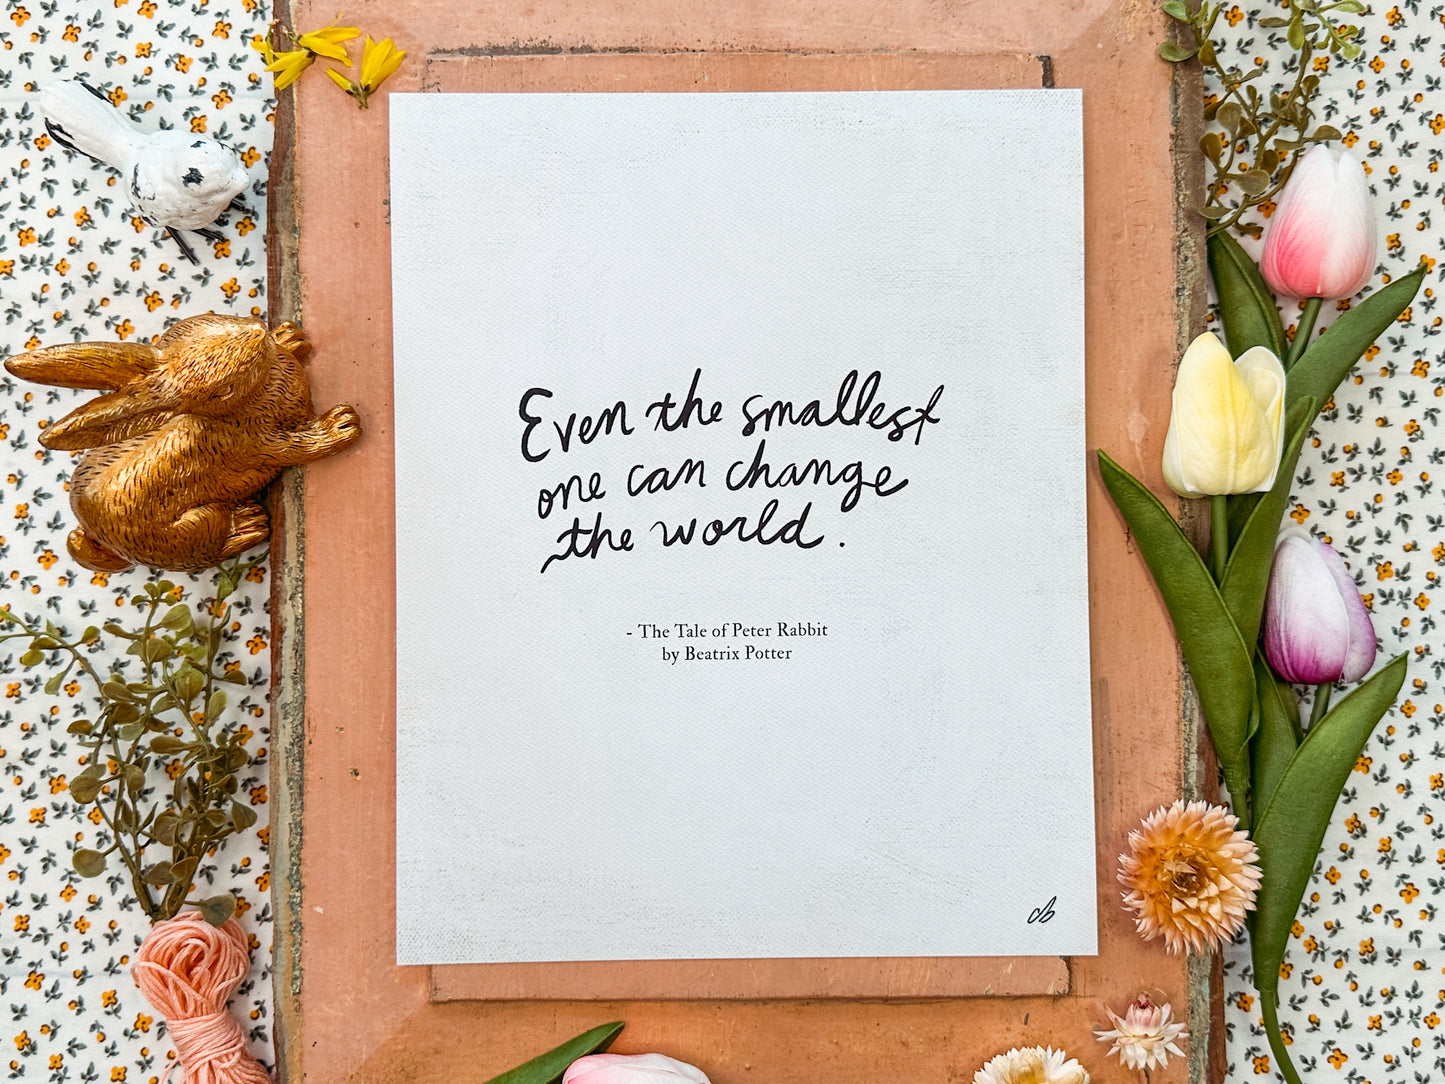 Even the smallest
one can change
the world.
- The Tale of Peter Rabbit
by Beatrix Potter
cb